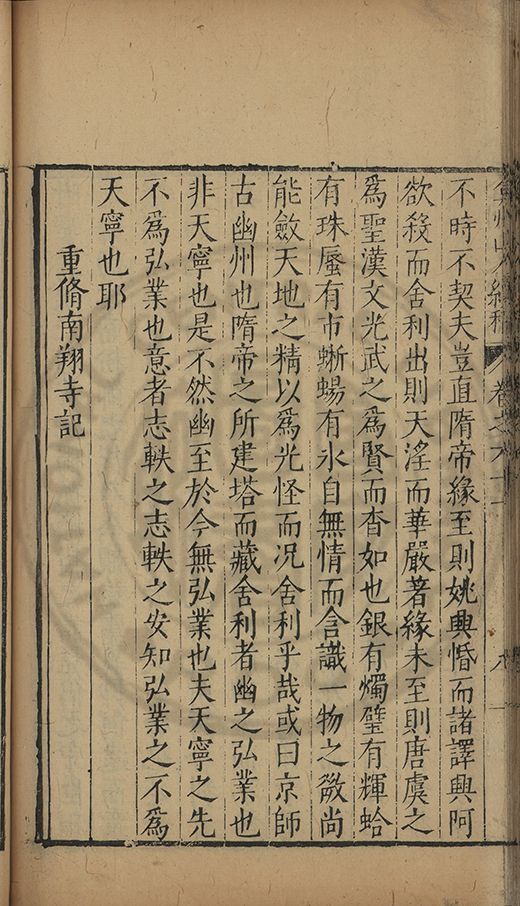 弇州山人續稿 卷之六十二 八
不時不契夫豈直隋帝緣至則姚興惛而諸譯興阿
欲殺而舍利出則天淫而華嚴著緣未至則唐虞之
爲聖漢文光武之爲賢而杳如也銀有燭璧有輝蛤
有珠蜃有市蜥蜴有氷自無情而含識一物之微尚
能斂天地之精以爲光怪而况舍利乎哉或曰京師
古幽州也隋帝之所建塔而藏舍利者幽之弘業也
非天寧也是不然幽至於今無弘業也夫天寧之先
不爲弘業也意者志軼之志軼之安知弘業之不爲
天寧也耶
重脩南翔寺記